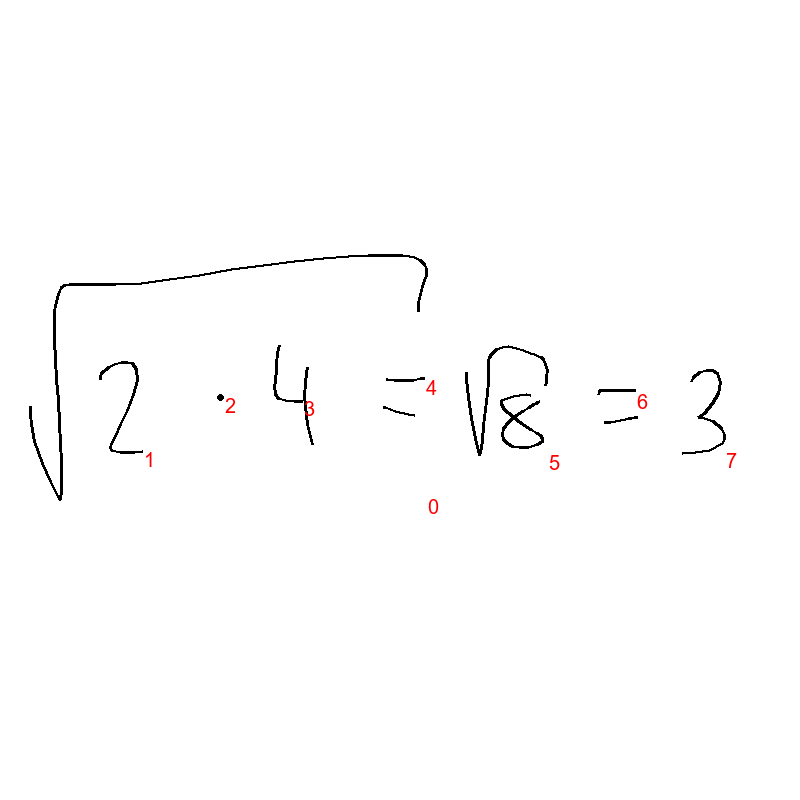 √(2 · 4) = √8 = 3
1 2 3 4 5 6 7
0